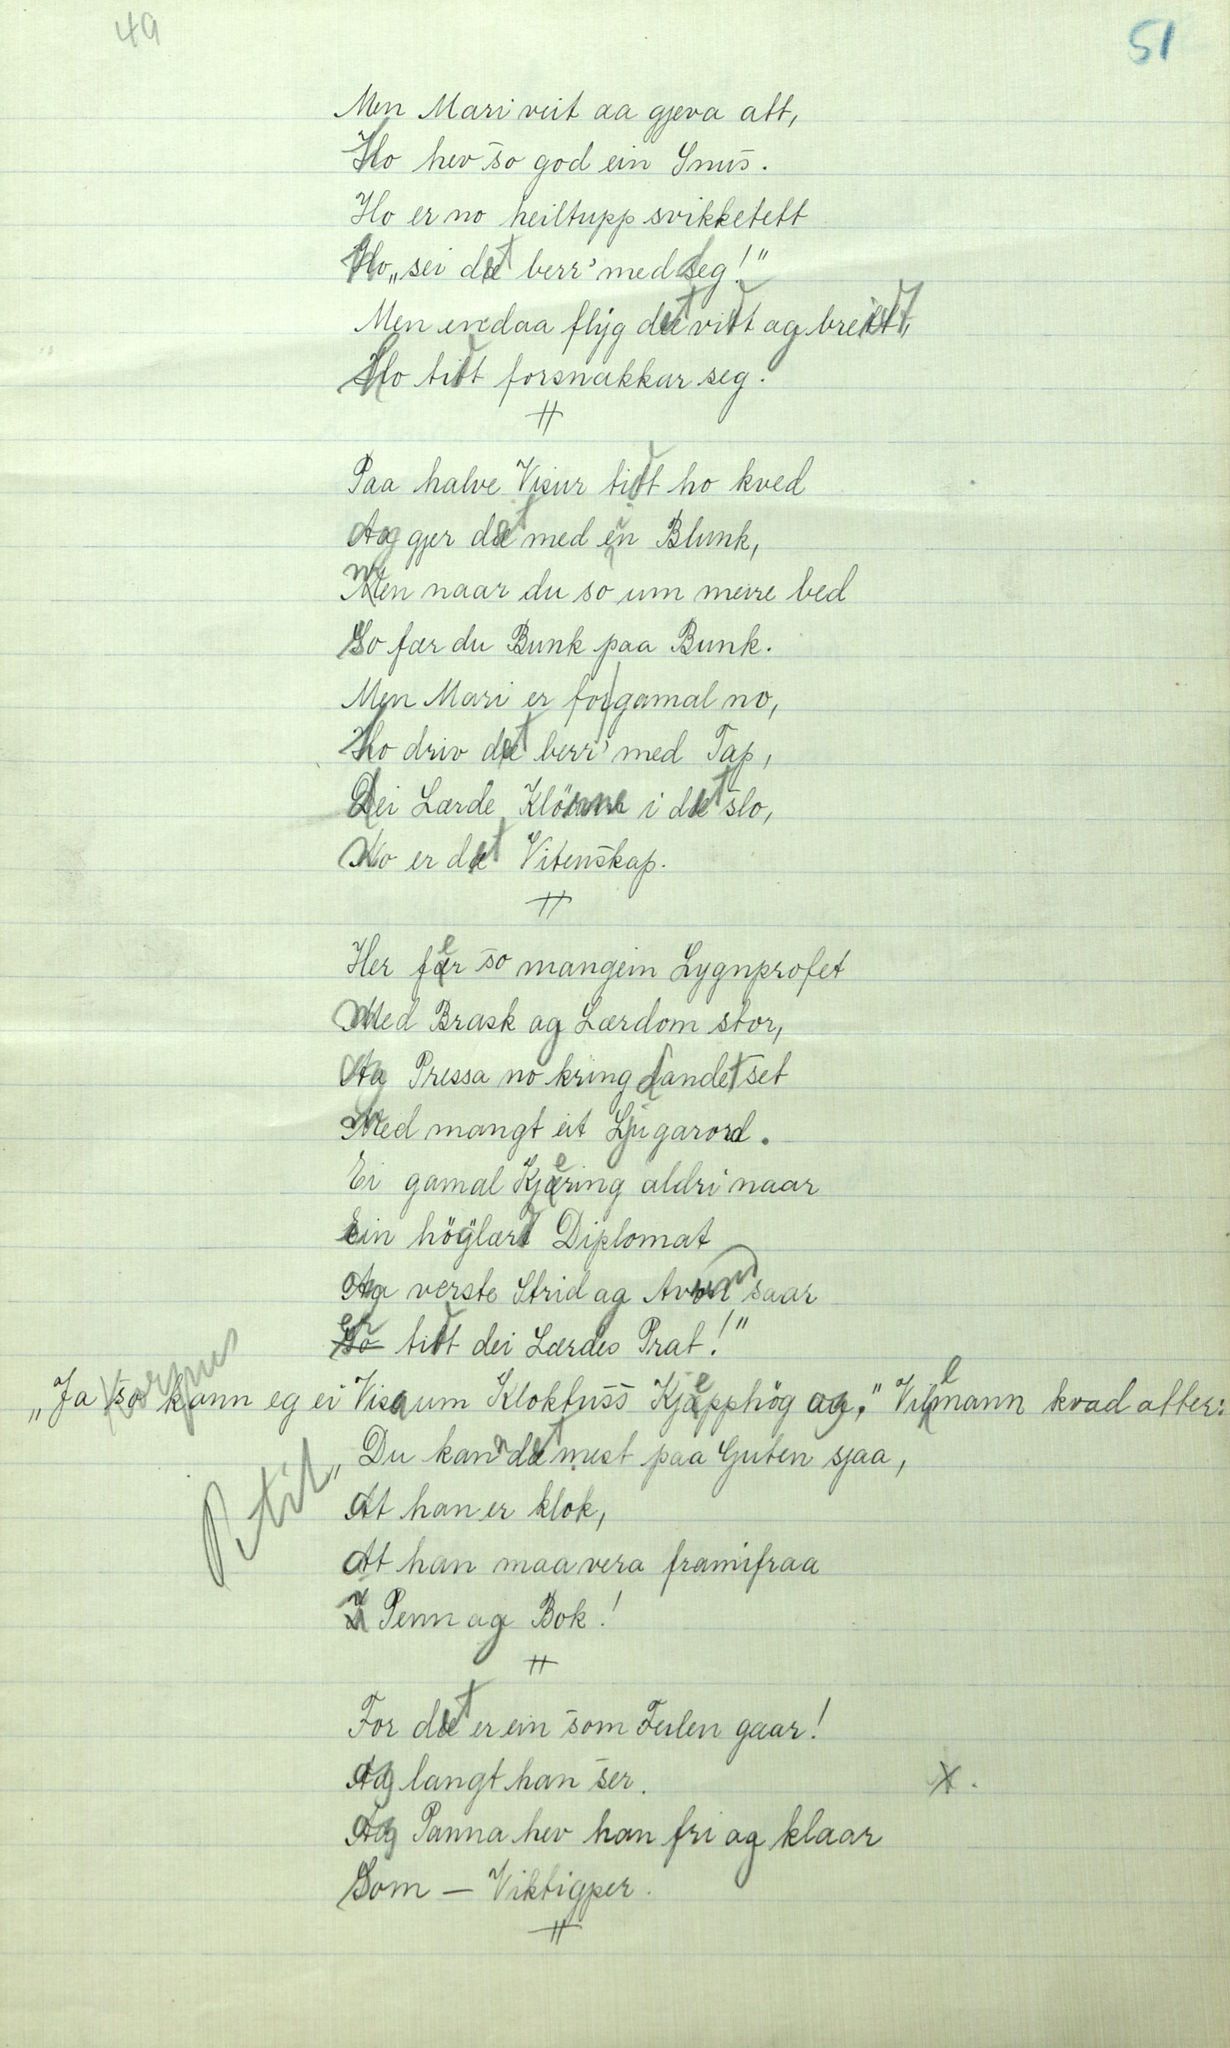 49
51
Men Mari veit aa gjeva att,
Ho hev so god ein Snus.
Ho er no heiltupp svikketett
Ho „sei det berr' med seg!"
Men endaa flyg det vidt ag breidt,
Ho tidt forsnakkar seg.
Paa halve Visur tidt ho kved
Ag gjer det med ein Blunk,
Men naar du so um meire bed
So fær du Bunk paa Bunk.
Men Mari er for gamal no,
Ho driv det berr' med Tap,
Dei Lærde Klöerne i det slo,
No er det Vitenskap.
Her fer so mangein Lygnprofet
Med Brask ag Lærdom stor,
Ag Pressa no kring Landet set
Med mangt eit Ljugarord.
Ei gamal Kjering aldri naar
Ein höglærd Diplomat
Ag verste Strid ag Avundsaar
er tidt dei Lærdes Prat!"
korpus
„Ja so kann eg ei Visa um Klokfuss Kjepphög ag," Vilemann kvad atter:
Petit
„Du kann det mest paa Guten sjaa,
At han er klok,
At han maa vera framifraa
I Penn ag Bok!
For det er ein som Feilen gaar!
Ag langt han ser.
X.
Ag Panna hev han fri ag klaar
Som — Viktigper.